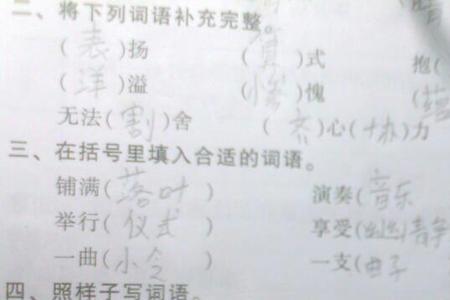 二、将下列词语补充完整。
(表)扬 ( )式 抱(
(洋)溢 (惭)愧 (
无法(割)舍 (齐)心(协)力
三、在括号里填入合适的词语。
铺满(落叶) 演奏(音乐
举行(仪式) 享受(
一曲(小令) 一支(曲子
四、照样子写词语。